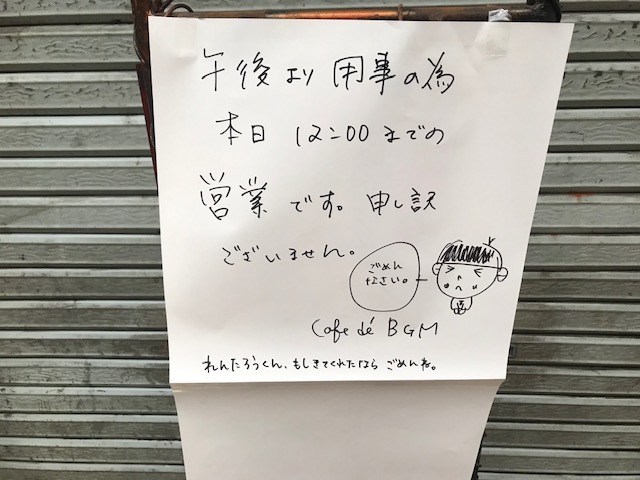 午後より用事の為
本日 12:00までの
営業です。申し訳
ございません。
ごめん
なさい。
Cafe dé BGM
れんたろうくん、もしきてくれたなら ごめんね。